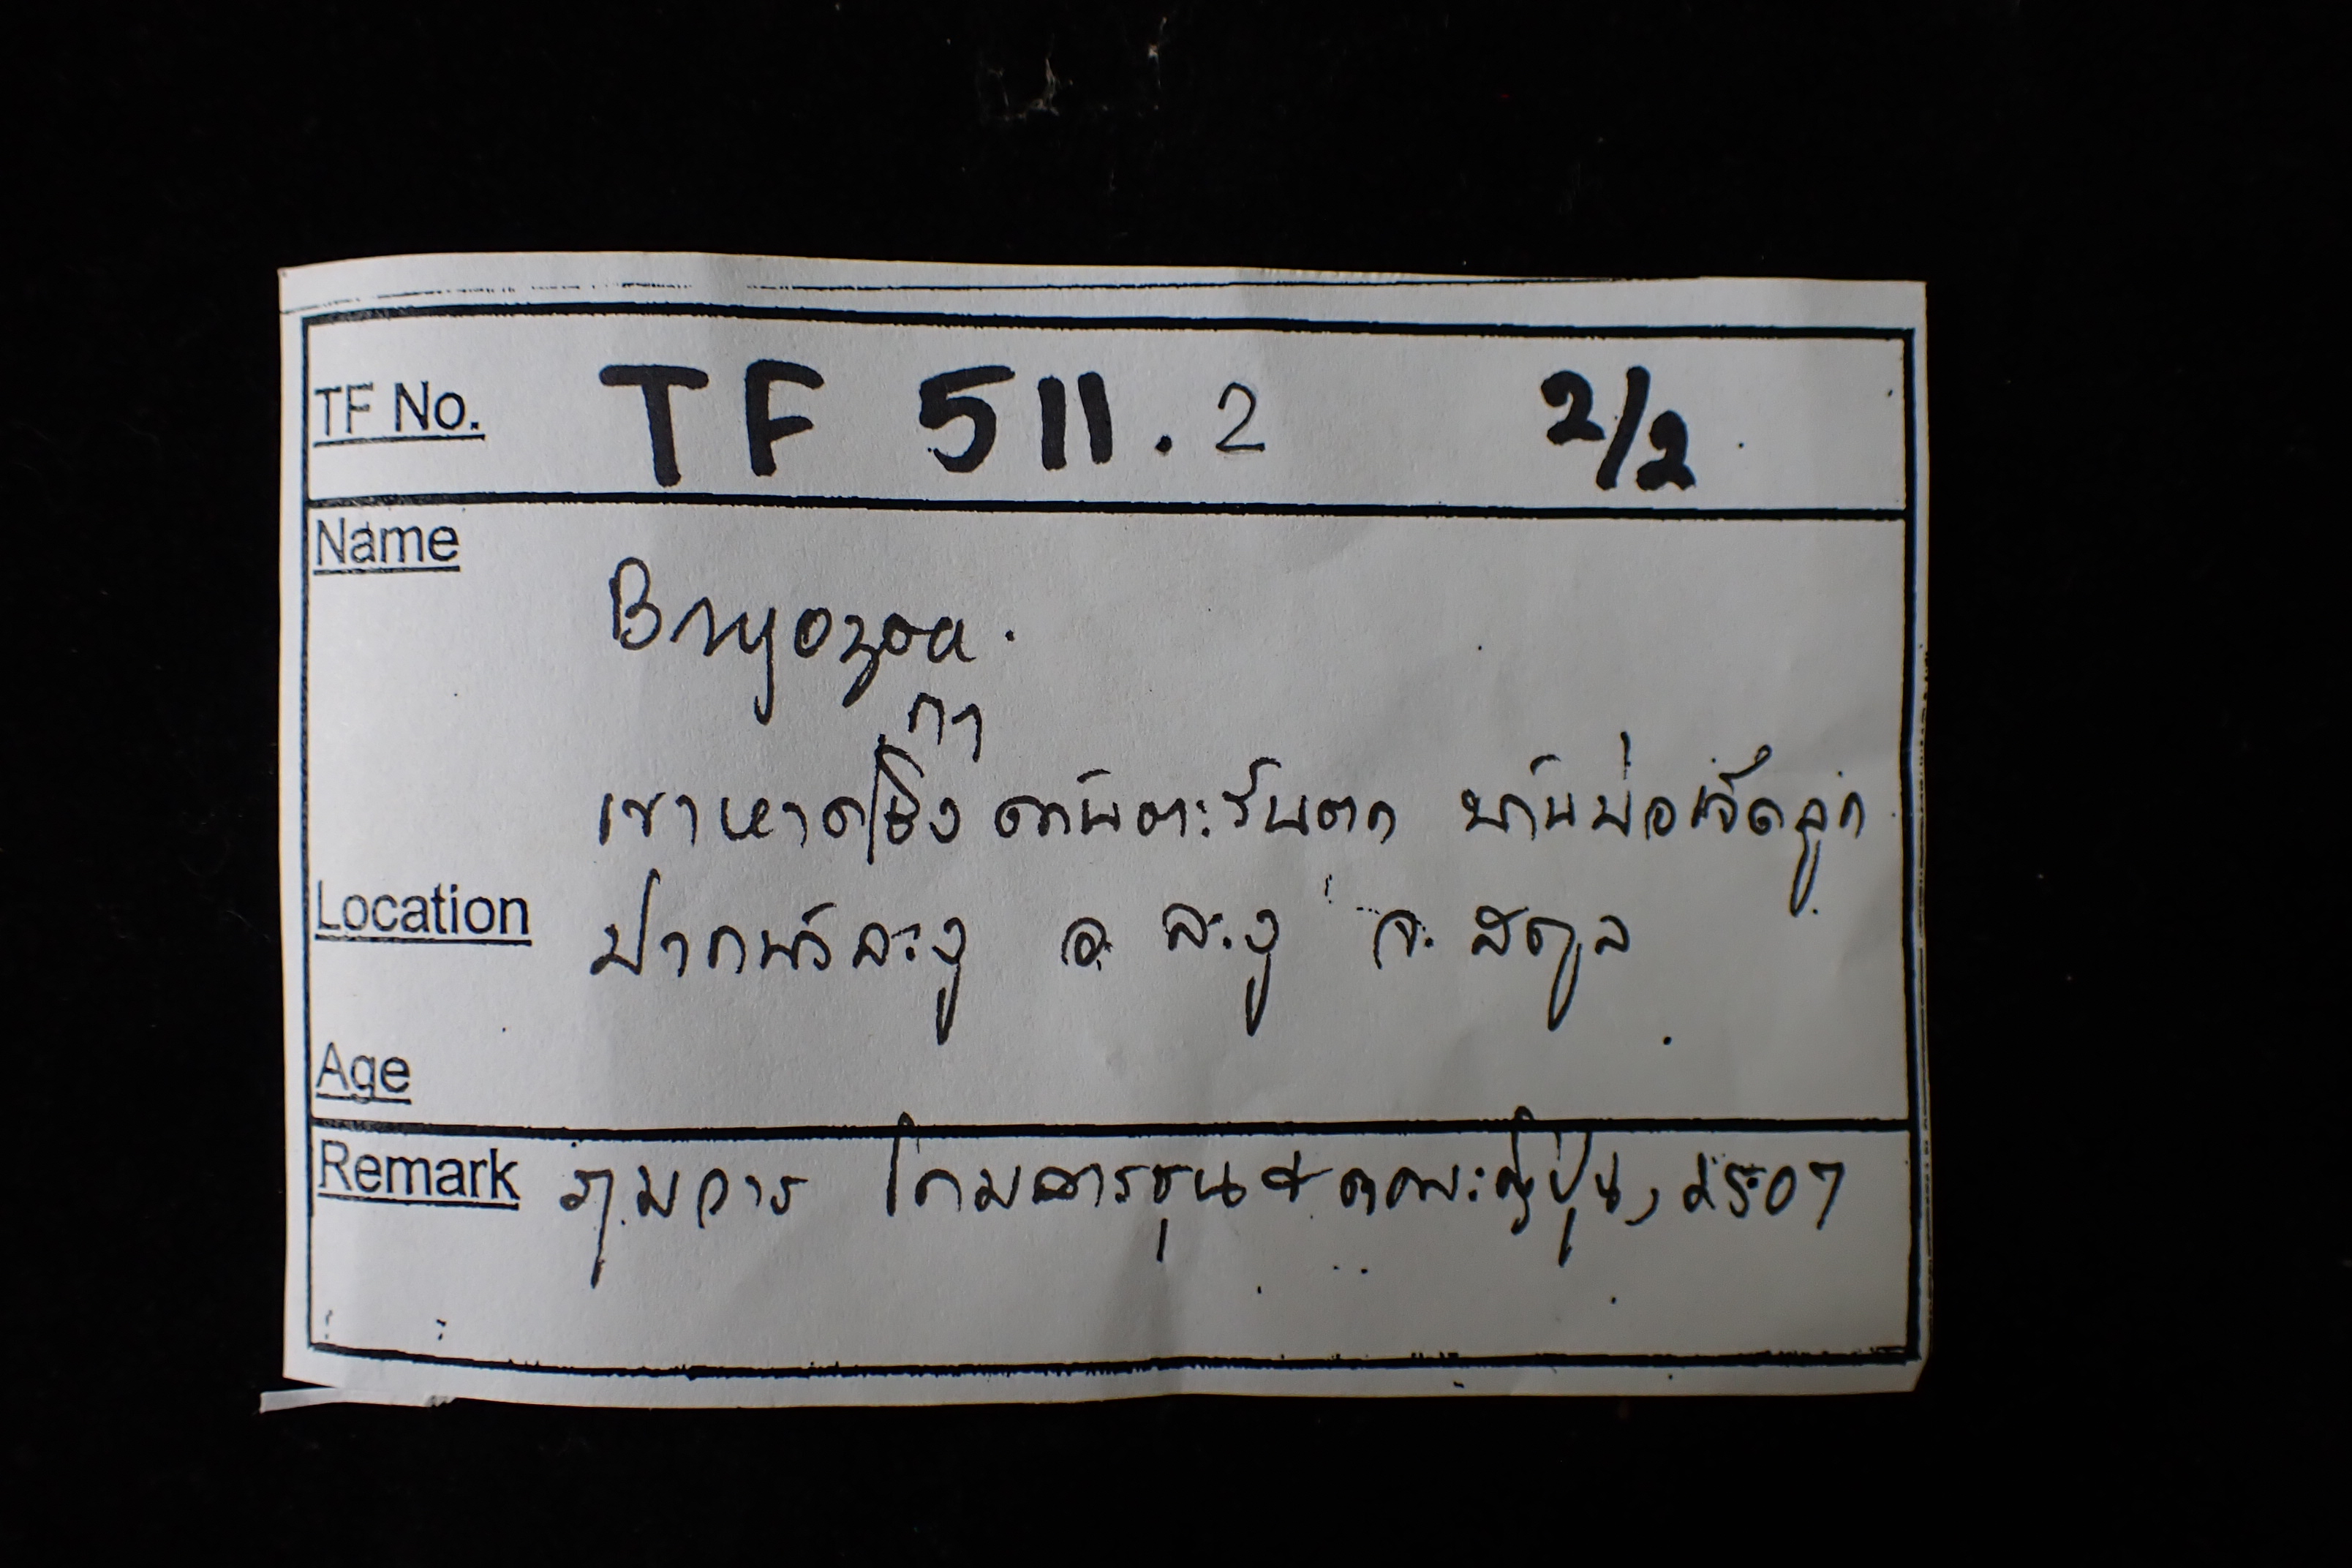 TF No. TF 511.2 2/2
Name
Bryozoa.
กา
เขาหาดยิง ด้านตะวันตก บ้านบ่อเจ็ดลูก
Location ปากน้ำละงู อ. ละงู จ. สตูล
Age
Remark โกมลารชุน + คณะญี่ปุ่น, 2507